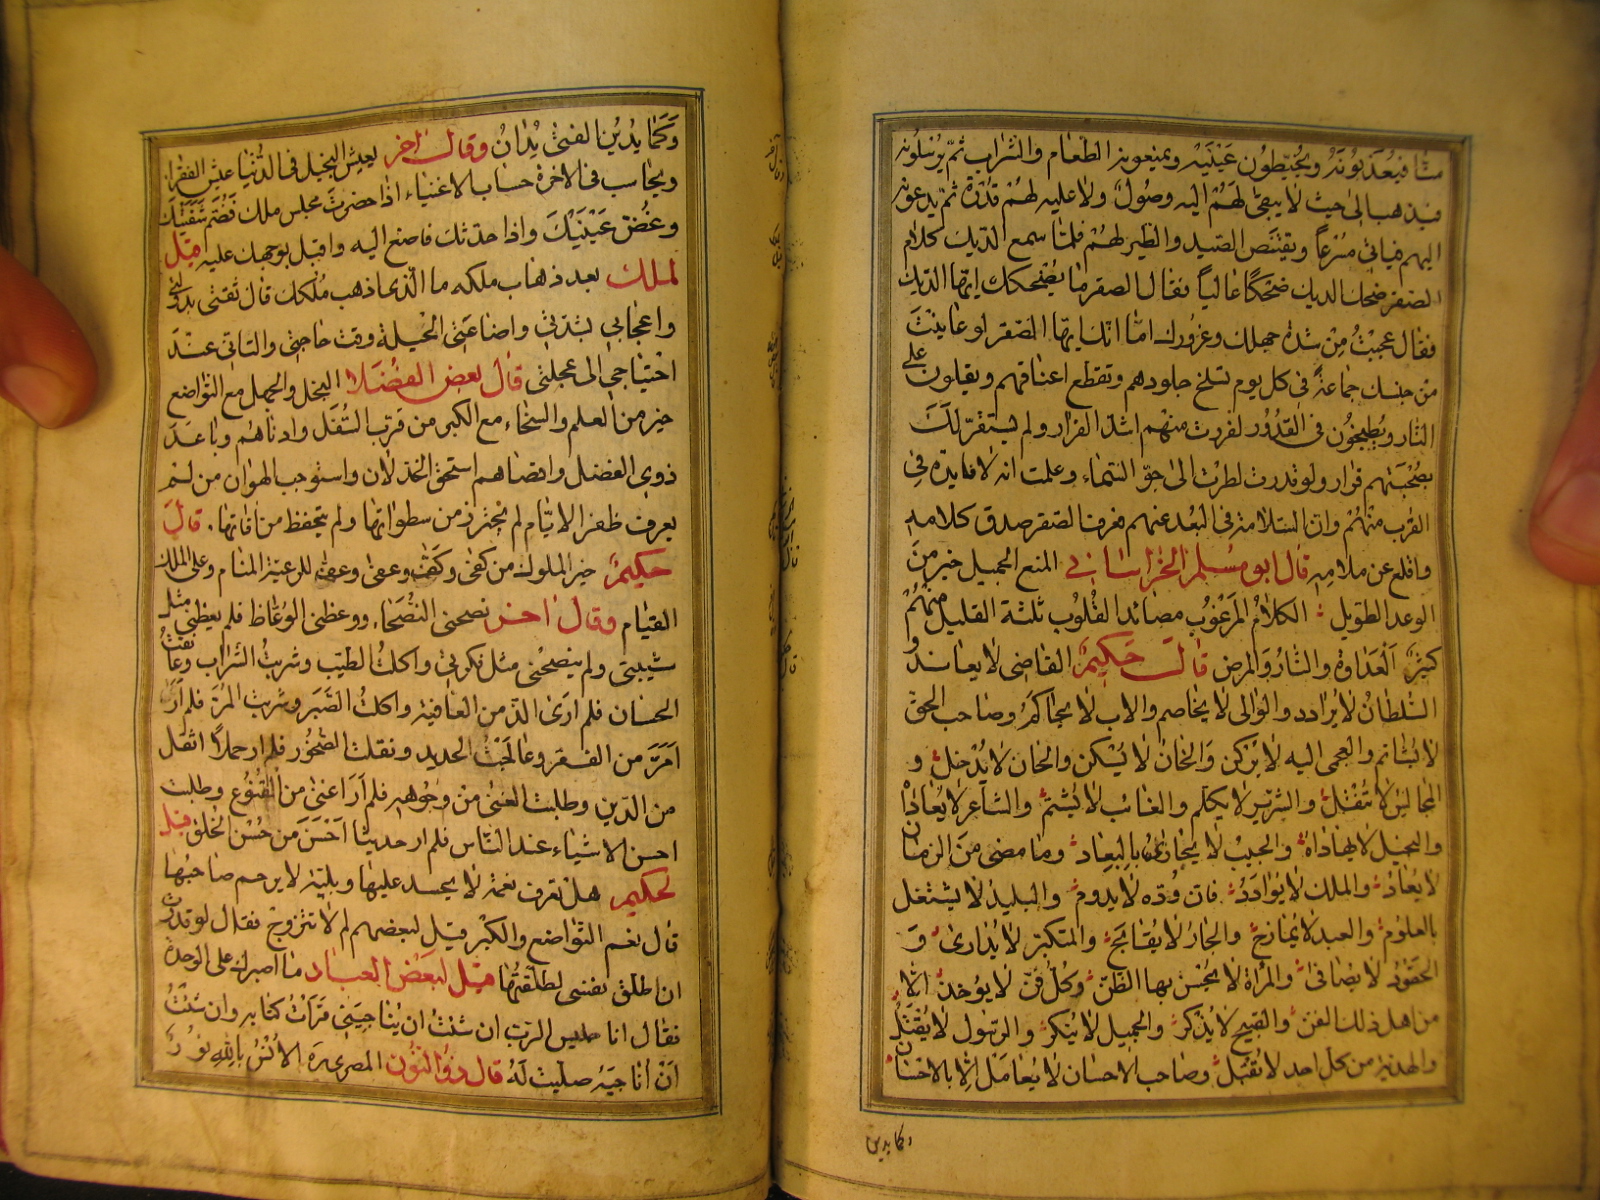 منّا فيعذبونه ويخيطون عينيه ويمنعونه الطعام والشراب ثم يرسلونه
فيذهب الى حيث لا يبقى لهم اليه وصول ولا عليه لهم قدرة ثم يدعونه
اليهم فياتى مسرعاً ويقتنص الصيد والطير لهم فلما سمع الديك كلام
الصقر ضحك الديك ضحكاً عالياً فقال الصقر ما يضحكك ايها الديك
فقال عجبت من شدة جهلك وغرورك اما انك ايها الصقر لو عاينت
من جنسك جماعة فى كل يوم تسلخ جلودهم وتقطع اعناقهم ويقلون على
النار ويطبخون فى القدور لفررت منهم اشد الفرار ولم يستقر لك
بصحبتهم قرار ولو قدرت لطرت الى جو السماء وعلمت انه لا فايدة فى
القرب منهم وان السلامة فى البعد عنهم فعرف الصقر صدق كلامه
واقلع عن ملامه قال ابو مسلم الخراسانى المنع الجميل خير من
الوعد الطويل الكلام المرغوب مصائد القلوب ثلثة القليل منهم
كثير العداوة والنار والمرض قال حكيم القاضى لا يعاند و
السلطان لا يرادد والوالى لا يخاصم والاب لا يحاكم وصاحب الحق
لا يشاتم والعجمى اليه لا يركن والخان لا يسكن والحان لا يدخل و
المجالس لا تثقل والشرير لا يكلم والغائب لا يشتم والشاعر لا يعادا
والبخيل لا يهاداه والحبيب لا يجازى بالبعاد وما مضى من الزمان
لا يعاد والملك لا يوادد فان وده لا يدوم والبليد لا يشتغل
بالعلوم والعبد لا يمازح والجار لا يقابح والمتكبر لا يدارى و
الحقود لا يصافى والمراة لا يحسن بها الظن وكل فن لا يوخذ الا
من اهل ذلك الفن والقبيح لا يذكر والجميل لا ينكر والرسول لا يقتل
والهدية من كل احد لا تقبل وصاحب الاحسان لا يعامل الا بالاحسان
وكما يدين
وكما يدين الفتى يدان وقال اخر يعيش البخيل فى الدنيا عيش الفقراء
ويحاسب فى الاخرة حساب الاغنياء اذا حضرت مجلس ملك فضم شفتيك
وغض عينيك واذا حدثك فاصغ اليه واقبل بوجهك عليه قيل
لملك بعد ذهاب ملكه ما الذى اذهب ملكك قال ثقتى بدولتى
واعجابى بشدتى واضاعتى الحيلة وقت حاجتى والتانى عند
احتياجى الى عجلتى قال بعض الفضلا البخل والجهل مع التواضع
خير من العلم والسخاء مع الكبر من قرب السفل وادناهم وباعد
ذوى الفضل واقصاهم استحق الخذلان واستوجب الهوان من لم
يعرف ظفر الايام لم يحترز من سطواتها ولم يتحفظ من افاتها قال
حكيم خير الملوك من كفى وكف وعفى وعف للرعية المنام وعلى الملك
القيام وقال اخر نصحنى النصحاء ووعظنى الوعاظ فلم يعظنى مثل
شيبتى ولم ينصحنى مثل فكرتى واكلت الطيب وشربت الشراب وعانقت
الحسان فلم ارى الذ من العافية واكلت الصبر وشربت المر فلم ار
امر من الفقر وعالجت الحديد ونقلت الصخور فلم ار حملاً اثقل
من الدين وطلبت الغنى من وجوهه فلم ار اغنى من القنوع وطلبت
احسن الاشياء عند الناس فلم ار حديثا احسن من حسن الخلق قيل
لحكيم هل تعرف نعمة لا يحسد عليها وبلية لا يرحم صاحبها
قال نعم التواضع والكبر وقيل لبعضهم لم لا تتزوج فقال لو قدرت
ان اطلق نفسى لطلقتها قيل لبعض العباد ما اصبرك على الوحدة
فقال انا جليس الرب ان شئت ان يناجينى قرات كتابه وان شئت
ان اناجيه صليت له قال ذو النون المصرى ره الانس بالله نور